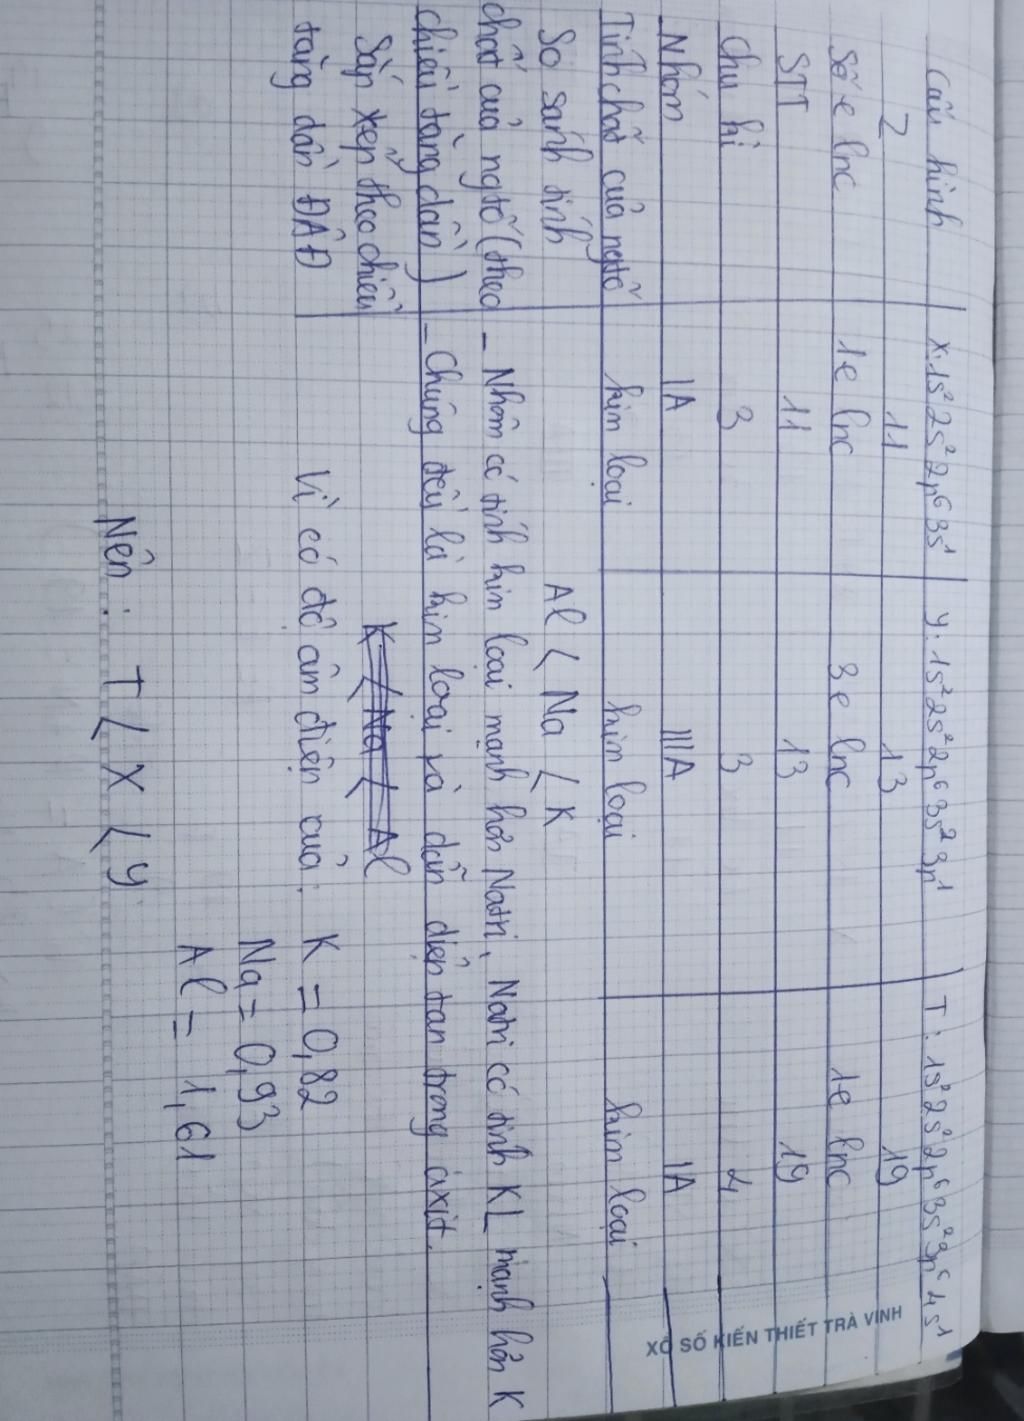 Cấu hình X: 1s² 2s² 2p⁶ 3s¹ y: 1s² 2s² 2p⁶ 3s² 3p¹ T: 1s² 2s² 2p⁶ 3s² 3p⁶ 4s¹
Z 11 13 19
Số e lnc 1e lnc 3e lnc 1e lnc
STT 11 13 19
Chu kì 3 3 4
Nhóm IA IIIA IA
Tính chất của ngtố kim loại kim loại kim loại
So sánh tính Al < Na < K
chất của ngtố (theo - Nhôm có tính kim loại mạnh hơn Natri, Natri có tính KL mạnh hơn K
chiều tăng dần) - Chúng đều là kim loại và dẫn điện tan trong axit.
Sắp xếp theo chiều K < Na < Al
tăng dần ĐÂĐ Vì có độ âm điện của: K = 0,82
Na = 0,93
Al = 1,61
Nên: T < X < y
XỔ SỐ KIẾN THIẾT TRÀ VINH